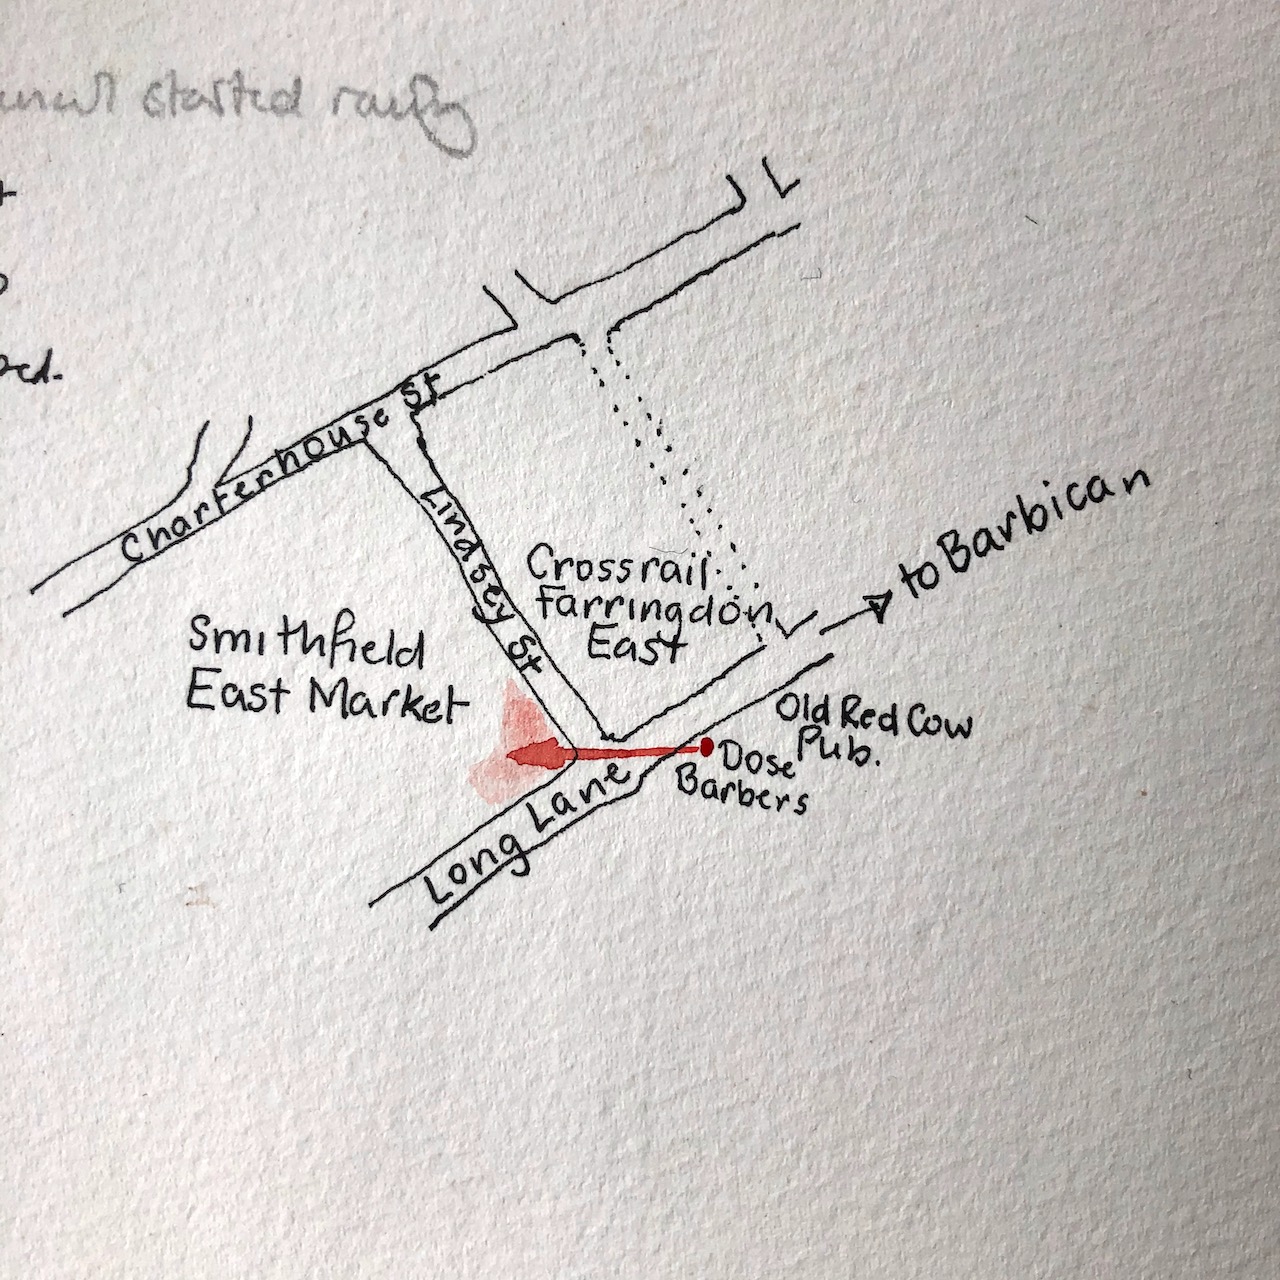 started
Charterhouse St
Lindsey St
Crossrail
Farringdon
East
to Barbican
Smithfield
East Market
Old Red Cow
Pub.
Dose
Barbers
Long Lane